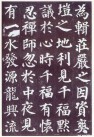 為輯莊嚴之因資爽
塏之地利見千福默
議於心時千福有懷
忍禪師忽於中夜見
有一水發源龍興流